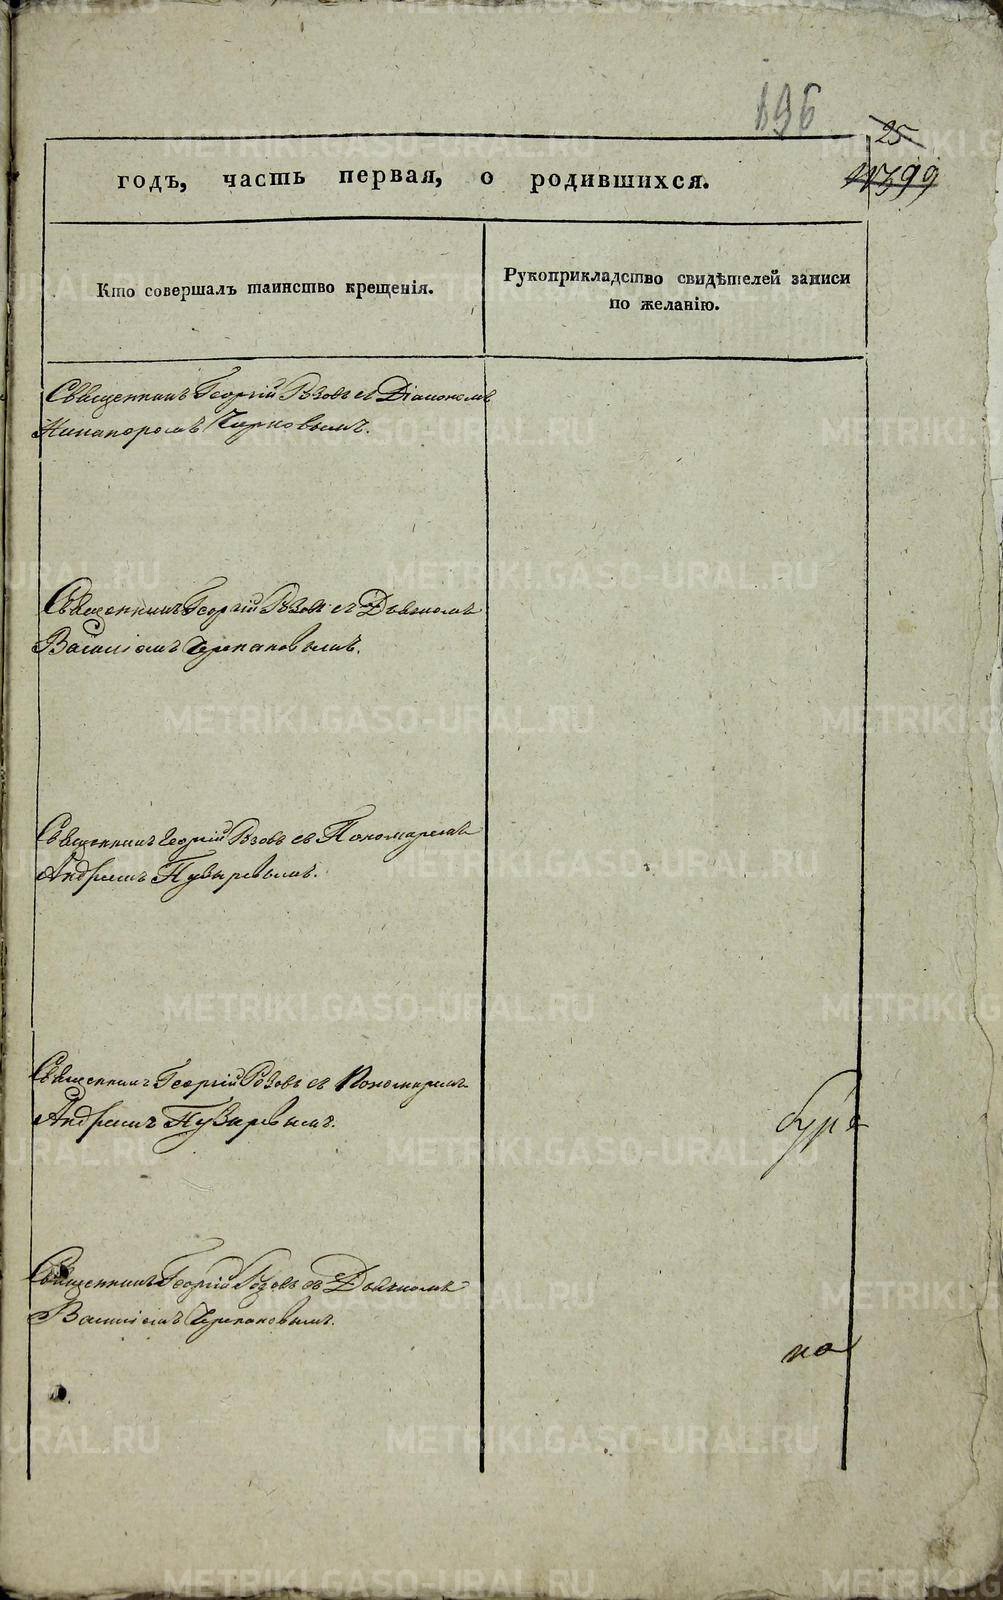 196
25
годъ, часть первая, о родившихся.
Кто совершалъ таинство крещенія.
Рукоприкладство свидѣтелей записи
по желанію.
Священникъ Георгій Розовъ съ Діакономъ
Никаноромъ Чирковымъ.
Священникъ Георгій Розовъ съ Дьячкомъ
Василіемъ Черепановымъ.
Священникъ Георгій Розовъ съ Пономаремъ
Андреемъ Пузыревымъ.
Священникъ Георгій Розовъ съ Пономаремъ
Андреемъ Пузыревымъ.
Священникъ Георгій Розовъ съ Дьячкомъ
Василіемъ Черепановымъ.
METRIKI.GASO-URAL.RU